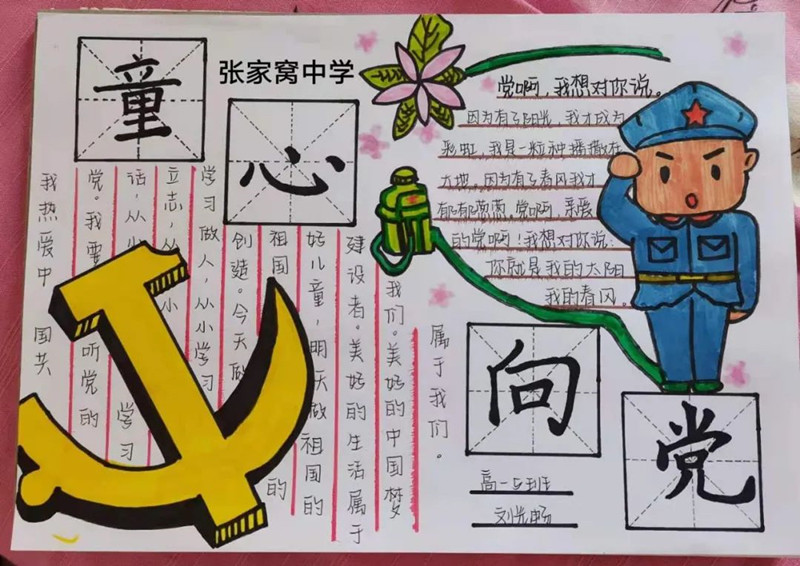 张家窝中学
童
心
向
党
我热爱中国共
党。我要听党的
话，从小学习
立志，从小
学习做人，从小学习
创造。今天做
祖国的
好儿童，明天做祖国的
建设者。美好的生活属于
我们。美好的中国梦
属于我们。
党啊，我想对你说。
因为有了阳光，我才成为
彩虹，我是一粒种播撒在
大地，因为有了春风我才
郁郁葱葱，党啊，亲爱
的党啊！我想对你说：
你就是我的太阳
我的春风。
高一5班